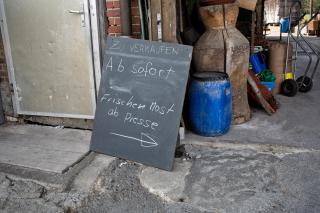 Zu VERKAUFEN
Ab sofort
Frischen Most
ab Presse